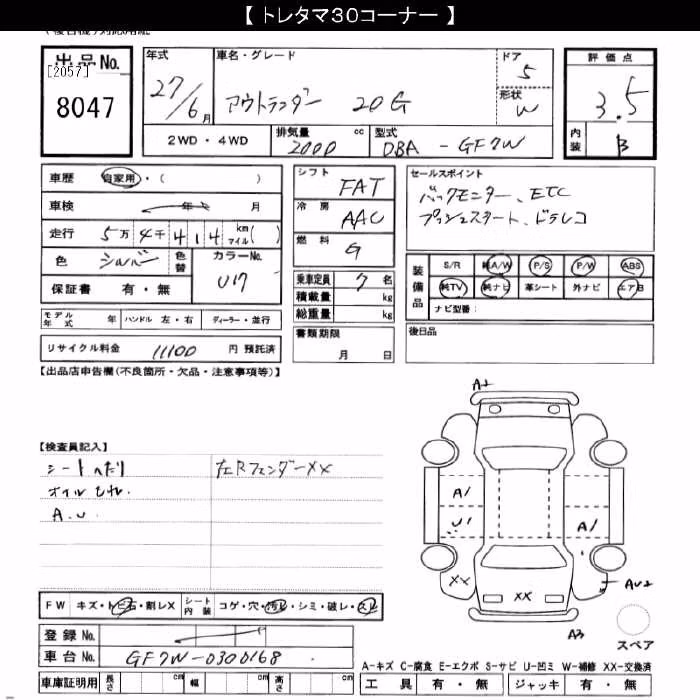 【 トレタマ30コーナー 】
出品No. [2057] 8047
年式 27/6月
車名・グレード アウトランダー 20G
ドア 5
形状 W
評価点 3.5
内装 B
2WD・4WD
排気量 2000 cc
型式 DBA - GF7W
車歴 自家用・( )
車検 年 月
走行 5万4千414 km マイル( )
色 シルバー 色替
カラーNo. U17
保証書 有・無
モデル年式 年 ハンドル 左・右 ディーラー・並行
リサイクル料金 11100 円 預託済
シフト FAT
冷房 AAC
燃料 G
乗車定員 7 名
積載量 kg
総重量 kg
書類期限 月 日
セールスポイント
バックモニター、ETC
プッシュスタート、ドラレコ
装備品 S/R 純A/W P/S P/W ABS
純TV 純ナビ 革シート 外ナビ エアB
ナビ型番:
後日品
【出品店申告欄(不良箇所・欠品・注意事項等)】
【検査員記入】
シートへたり 左Rフェンダーxx
オイルもれ
A.U
A2
A1
U1
A1
XX
XX
AU2
A3
スペア
FW キズ・トビ石・割レX シート内装 コゲ・穴・汚レ・シミ・破レ・スレ
登録No.
車台No. GF7W-0300168
車庫証明用 長さ cm 幅 cm 高さ cm
A-キズ C-腐食 E-エクボ S-サビ U-凹ミ W-補修 XX-交換済
工具 有・無 ジャッキ 有・無